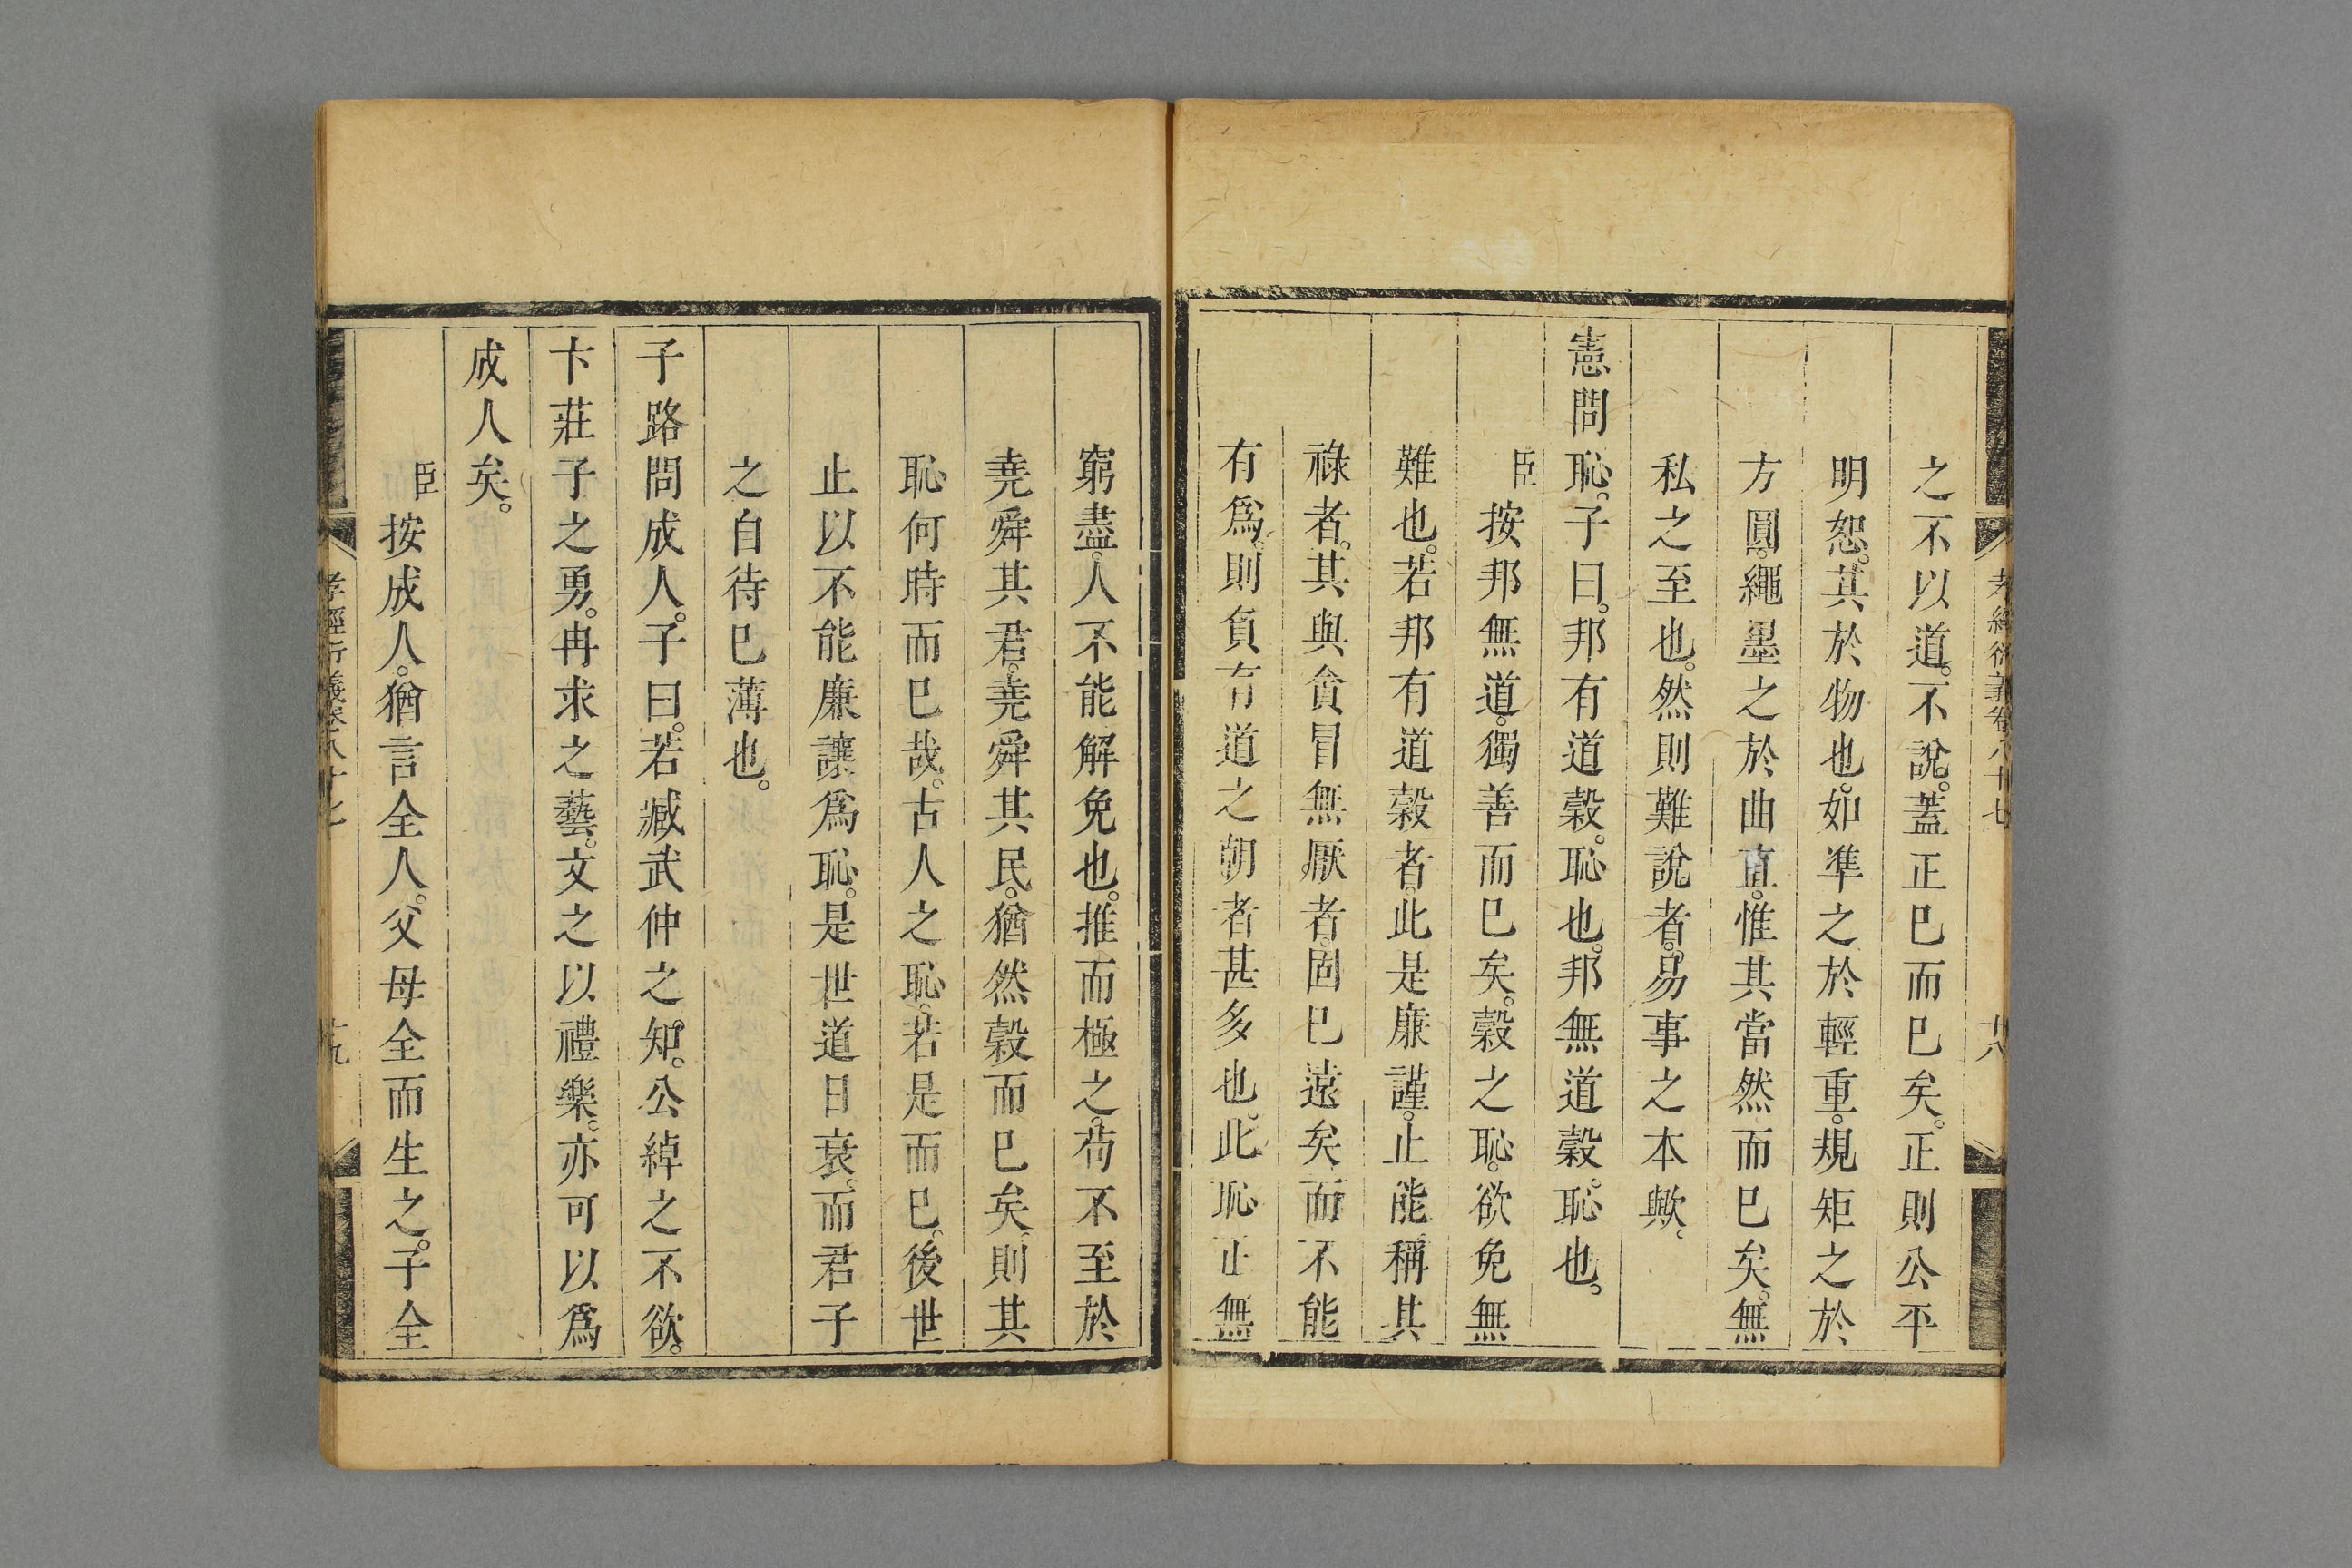 孝經衍義卷八十七
廿八
之不以道。不說。蓋正已而已矣。正則公平
明恕。其於物也。如準之於輕重。規矩之於
方圓。繩墨之於曲直。惟其當然而已矣。無
私之至也。然則難說者。易事之本歟。
憲問恥。子曰。邦有道穀。恥也。邦無道穀。恥也。
臣按邦無道。獨善而已矣。穀之恥。欲免無
難也。若邦有道穀者。此是廉謹。止能稱其
祿者。其與貪冒無厭者。固已遠矣。而不能
有爲。則負有道之朝者甚多也。此恥正無
窮盡。人不能解免也。推而極之。苟不至於
堯舜其君。堯舜其民。猶然穀而已矣。則其
恥何時而已哉。古人之恥。若是而已。後世
止以不能廉讓爲恥。是世道日衰。而君子
之自待已薄也。
子路問成人。子曰。若臧武仲之知。公綽之不欲。
卞莊子之勇。冉求之藝。文之以禮樂。亦可以爲
成人矣。
臣按成人。猶言全人。父母全而生之。子全
孝經衍義卷八十七
廿九